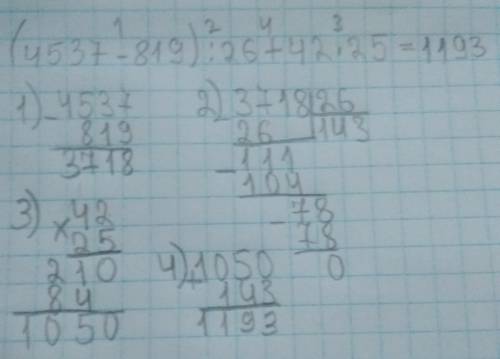 1 2 4 3
(4537-819):26+42·25=1193
1) - 4537
819
3718
2) 3718 26
26 143
- 111
104
- 78
78
0
3) × 42
25
210
84
1050
4) + 1050
143
1193